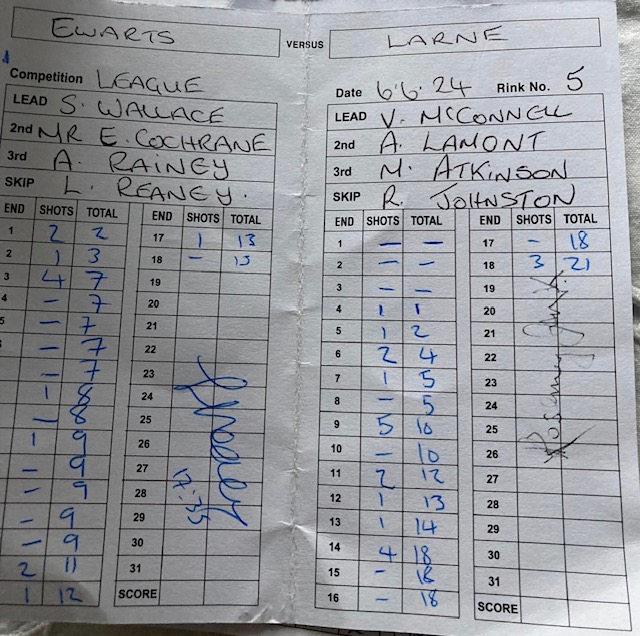 EWARTS VERSUS LARNE
Competition LEAGUE
LEAD S. WALLACE
2nd MR E. COCHRANE
3rd A. RAINEY
SKIP L. REANEY.
END SHOTS TOTAL END SHOTS TOTAL
1 2 2 17 1 13
2 1 3 18 - 13
3 4 7 19
4 - 7 20
5 - 7 21
- 7 22
- 7 23
1 8 24
- 8 25
1 9 26
- 9 27
- 9 28
- 9 29
- 9 30
2 11 31
1 12 SCORE
Date 6.6.24 Rink No. 5
LEAD V. MCCONNELL
2nd A. LAMONT
3rd M. ATKINSON
SKIP R. JOHNSTON
END SHOTS TOTAL END SHOTS TOTAL
1 - - 17 - 18
2 - - 18 3 21
3 - - 19
4 1 1 20
5 1 2 21
6 2 4 22
7 1 5 23
8 - 5 24
9 5 10 25
10 - 10 26
11 2 12 27
12 1 13 28
13 1 14 29
14 4 18 30
15 - 18 31
16 - 18 SCORE